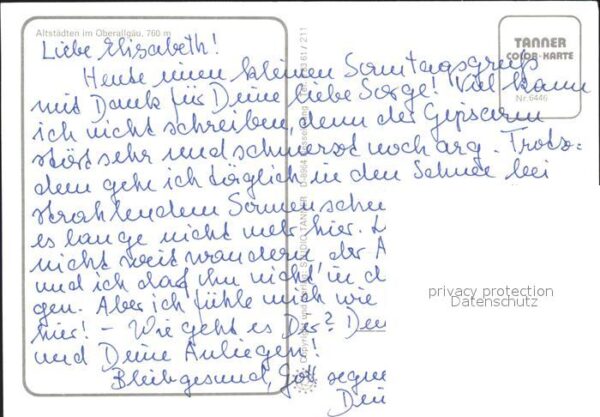 Altstädten im Oberallgäu, 760 m
TANNER
COLOR-KARTE
Nr. 6446
Liebe Elisabeth!
Heute einen kleinen Sonntagsgruß
mit Dank für Deine liebe Sorge! Viel kann
ich nicht schreiben, denn der Gipsarm
stört sehr und schmerzt noch arg. Trotz-
dem gehe ich täglich in den Schnee bei
strahlendem Sonnenschei
es lange nicht mehr hier.
nicht weit wandern, der A
und ich darf ihn nicht in d
gen. Aber ich fühle mich wie
hier! - Wie geht es Dir? Den
und Deine Anliegen!
Bleib gesund, Gott segne
Dein
Copyright und STUDIO TANNER
211
privacy protection
Datenschutz